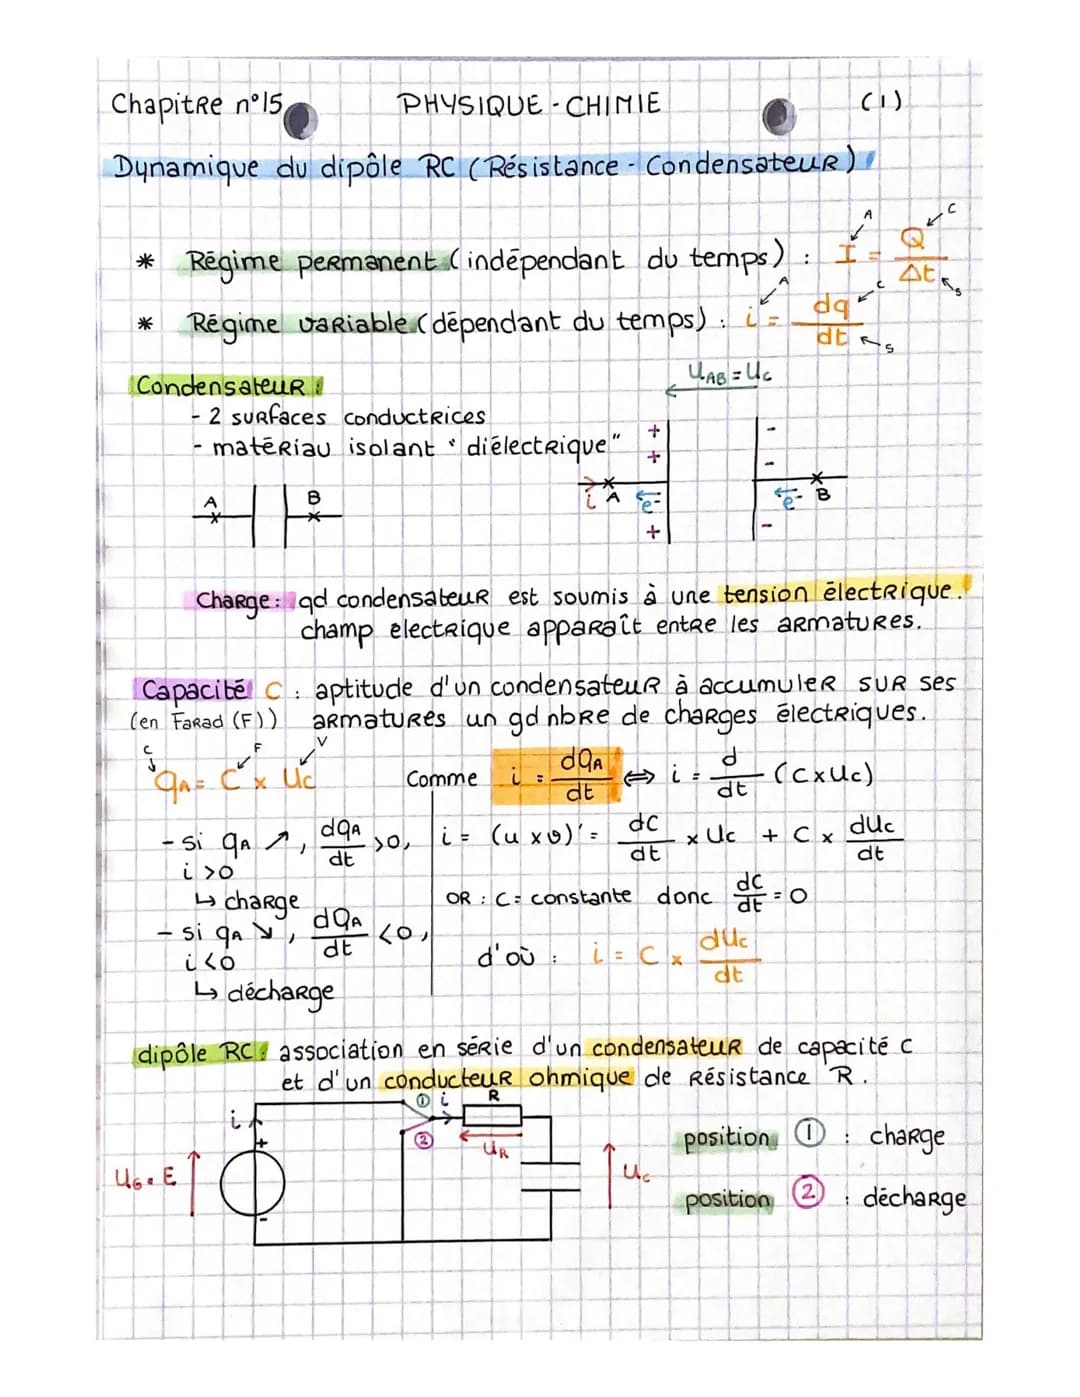 Chapitre n°15 PHYSIQUE - CHIMIE (1)
Dynamique du dipôle RC (Résistance - Condensateur)
* Régime permanent (indépendant du temps) : I = Q/Δt
A C s
* Régime variable (dépendant du temps) : i = dq/dt
A C s
Condensateur :
U_AB = Uc
- 2 surfaces conductrices
- matériau isolant "diélectrique"
A B
+ + + i A e- - - - e- B
Charge : qd condensateur est soumis à une tension électrique.
champ electrique apparaît entre les armatures.
Capacité C : aptitude d'un condensateur à accumuler sur ses
(en Farad (F)) armatures un gd nbre de charges électriques.
C F V
q_A = C x Uc
Comme i = dq_A/dt ⇔ i = d/dt (C x Uc)
- si q_A ↗, dq_A/dt >0,
i >0
↳ charge
- si q_A ↘, dq_A/dt <0,
i <0
↳ décharge
i = (u x v)' = dC/dt x Uc + C x dUc/dt
OR : C = constante donc dC/dt = 0
d'où : i = C x dUc/dt
dipôle RC : association en série d'un condensateur de capacité C
et d'un conducteur ohmique de résistance R.
i + - U_G = E
① i R
② U_R
Uc
position ① : charge
position ② : décharge